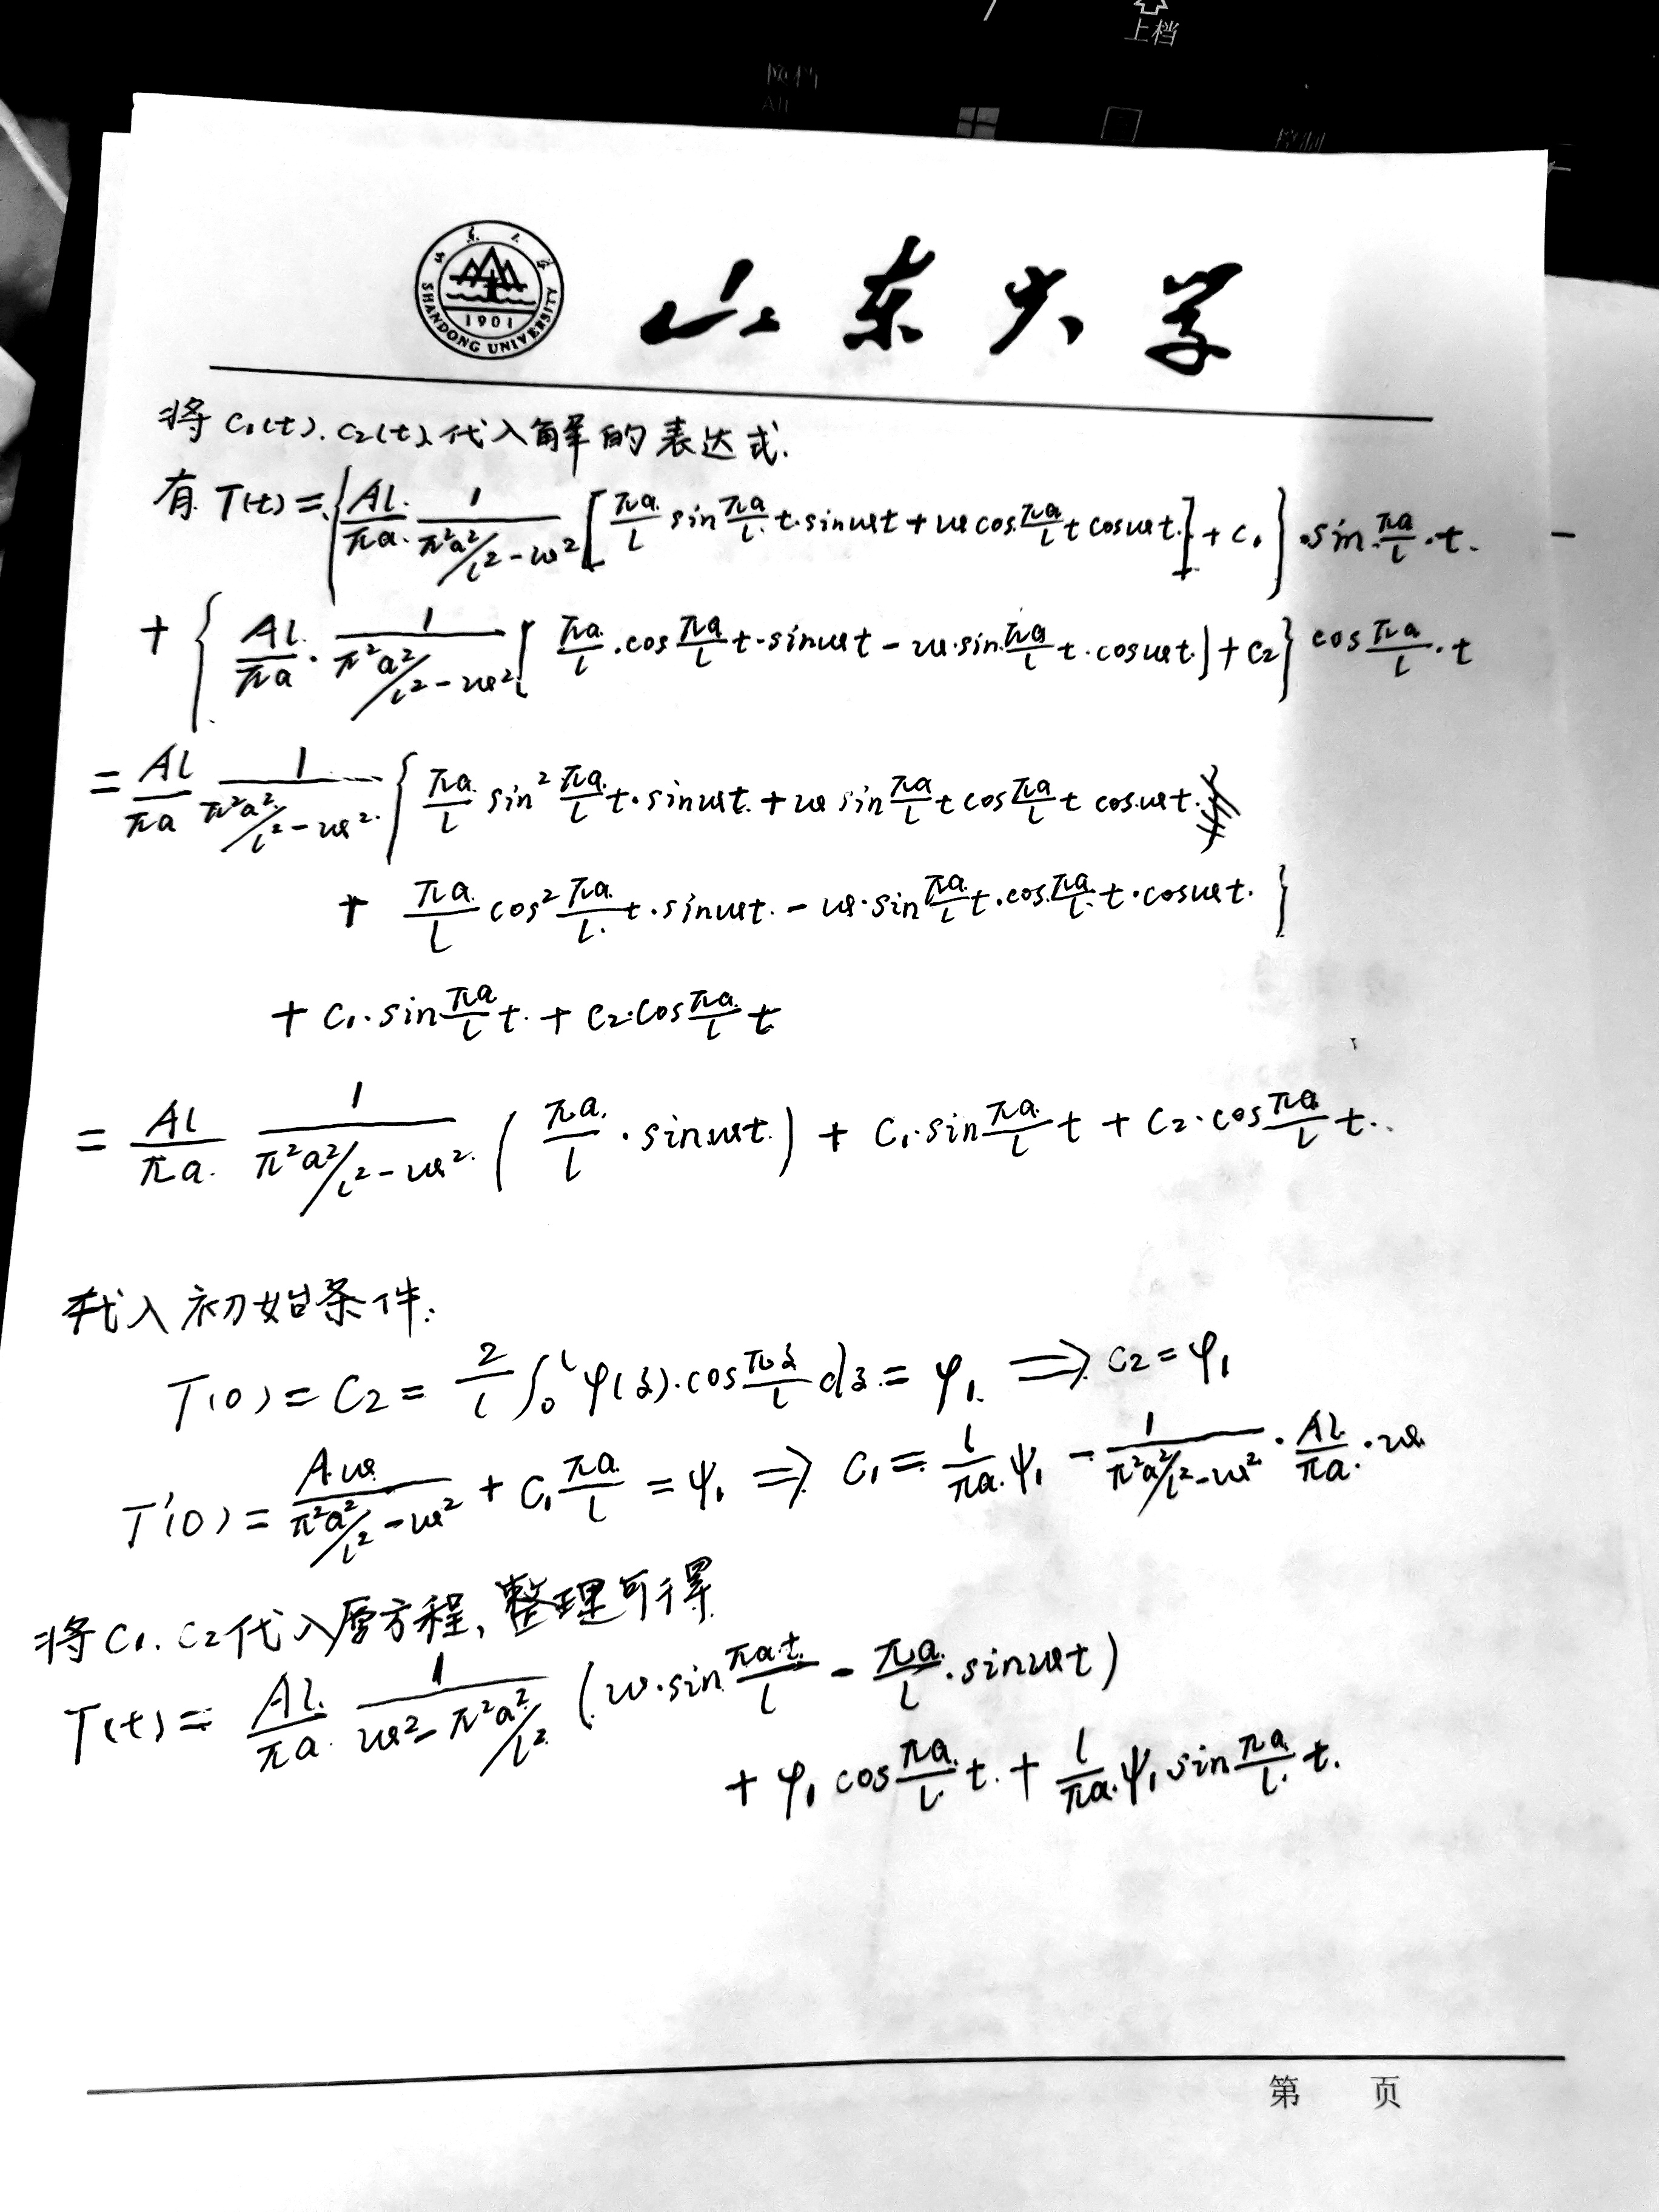 上档
Alt
SHANDONG UNIVERSITY
1901
山东大学
将C₁(t).C₂(t)代入解的表达式.
有 T(t)={Al/πa · 1/(π²a²/l²-ω²) [πa/l sin πa/l t·sinωt+ω cos πa/l t cosωt]+C₁}·sin πa/l·t.
+ {Al/πa · 1/(π²a²/l²-ω²) [πa/l·cos πa/l t·sinωt-ω·sin πa/l t·cosωt]+C₂} cos πa/l·t
= Al/πa 1/(π²a²/l²-ω²) {πa/l sin² πa/l t·sinωt+ω sin πa/l t cos πa/l t cosωt
+ πa/l cos² πa/l t·sinωt-ω·sin πa/l t·cos πa/l t·cosωt}
+ C₁·sin πa/l t+C₂·cos πa/l t
= Al/πa 1/(π²a²/l²-ω²) (πa/l·sinωt)+C₁·sin πa/l t+C₂·cos πa/l t
代入初始条件:
T(0)=C₂=2/l ∫₀ˡ φ(ξ)·cos πξ/l dξ=φ₁ ⟹ C₂=φ₁
T'(0)=Aω/(π²a²/l²-ω²)+C₁ πa/l=ψ₁ ⟹ C₁=l/πa ψ₁-1/(π²a²/l²-ω²)·Al/πa·ω
将C₁.C₂代入原方程,整理可得
T(t)=Al/πa 1/(ω²-π²a²/l²) (ω·sin πat/l-πa/l·sinωt)
+φ₁ cos πa/l t+l/πa ψ₁ sin πa/l t.
第 页